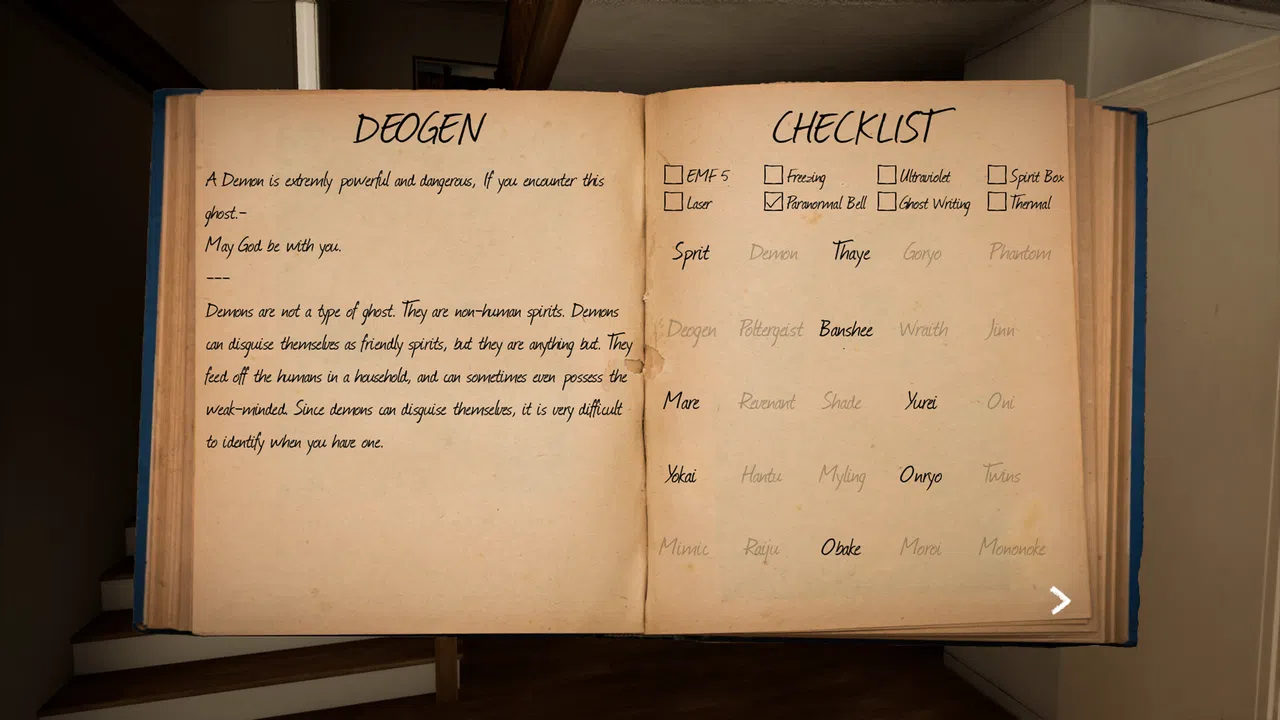 DEOGEN
A Demon is extremly powerful and dangerous, If you encounter this
ghost.-
May God be with you.
---
Demons are not a type of ghost. They are non-human spirits. Demons
can disguise themselves as friendly spirits, but they are anything but. They
feed off the humans in a household, and can sometimes even possess the
weak-minded. Since demons can disguise themselves, it is very difficult
to identify when you have one.
CHECKLIST
EMF 5 Freezing Ultraviolet Spirit Box
Laser Paranormal Bell Ghost Writing Thermal
Sprit Demon Thaye Goryo Phantom
Deogen Poltergeist Banshee Wraith Jinn
Mare Revenant Shade Yurei Oni
Yokai Hantu Myling Onryo Twins
Mimic Raiju Obake Moroi Mononoke